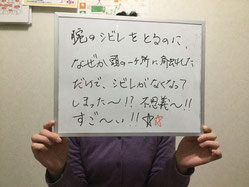 腕のシビレをとるのに、
なぜか頭の一ヶ所に角虫れた
だけで、シビレがなくなって
しまった〜!? 不思義〜!!
すご〜い!! ☆☆